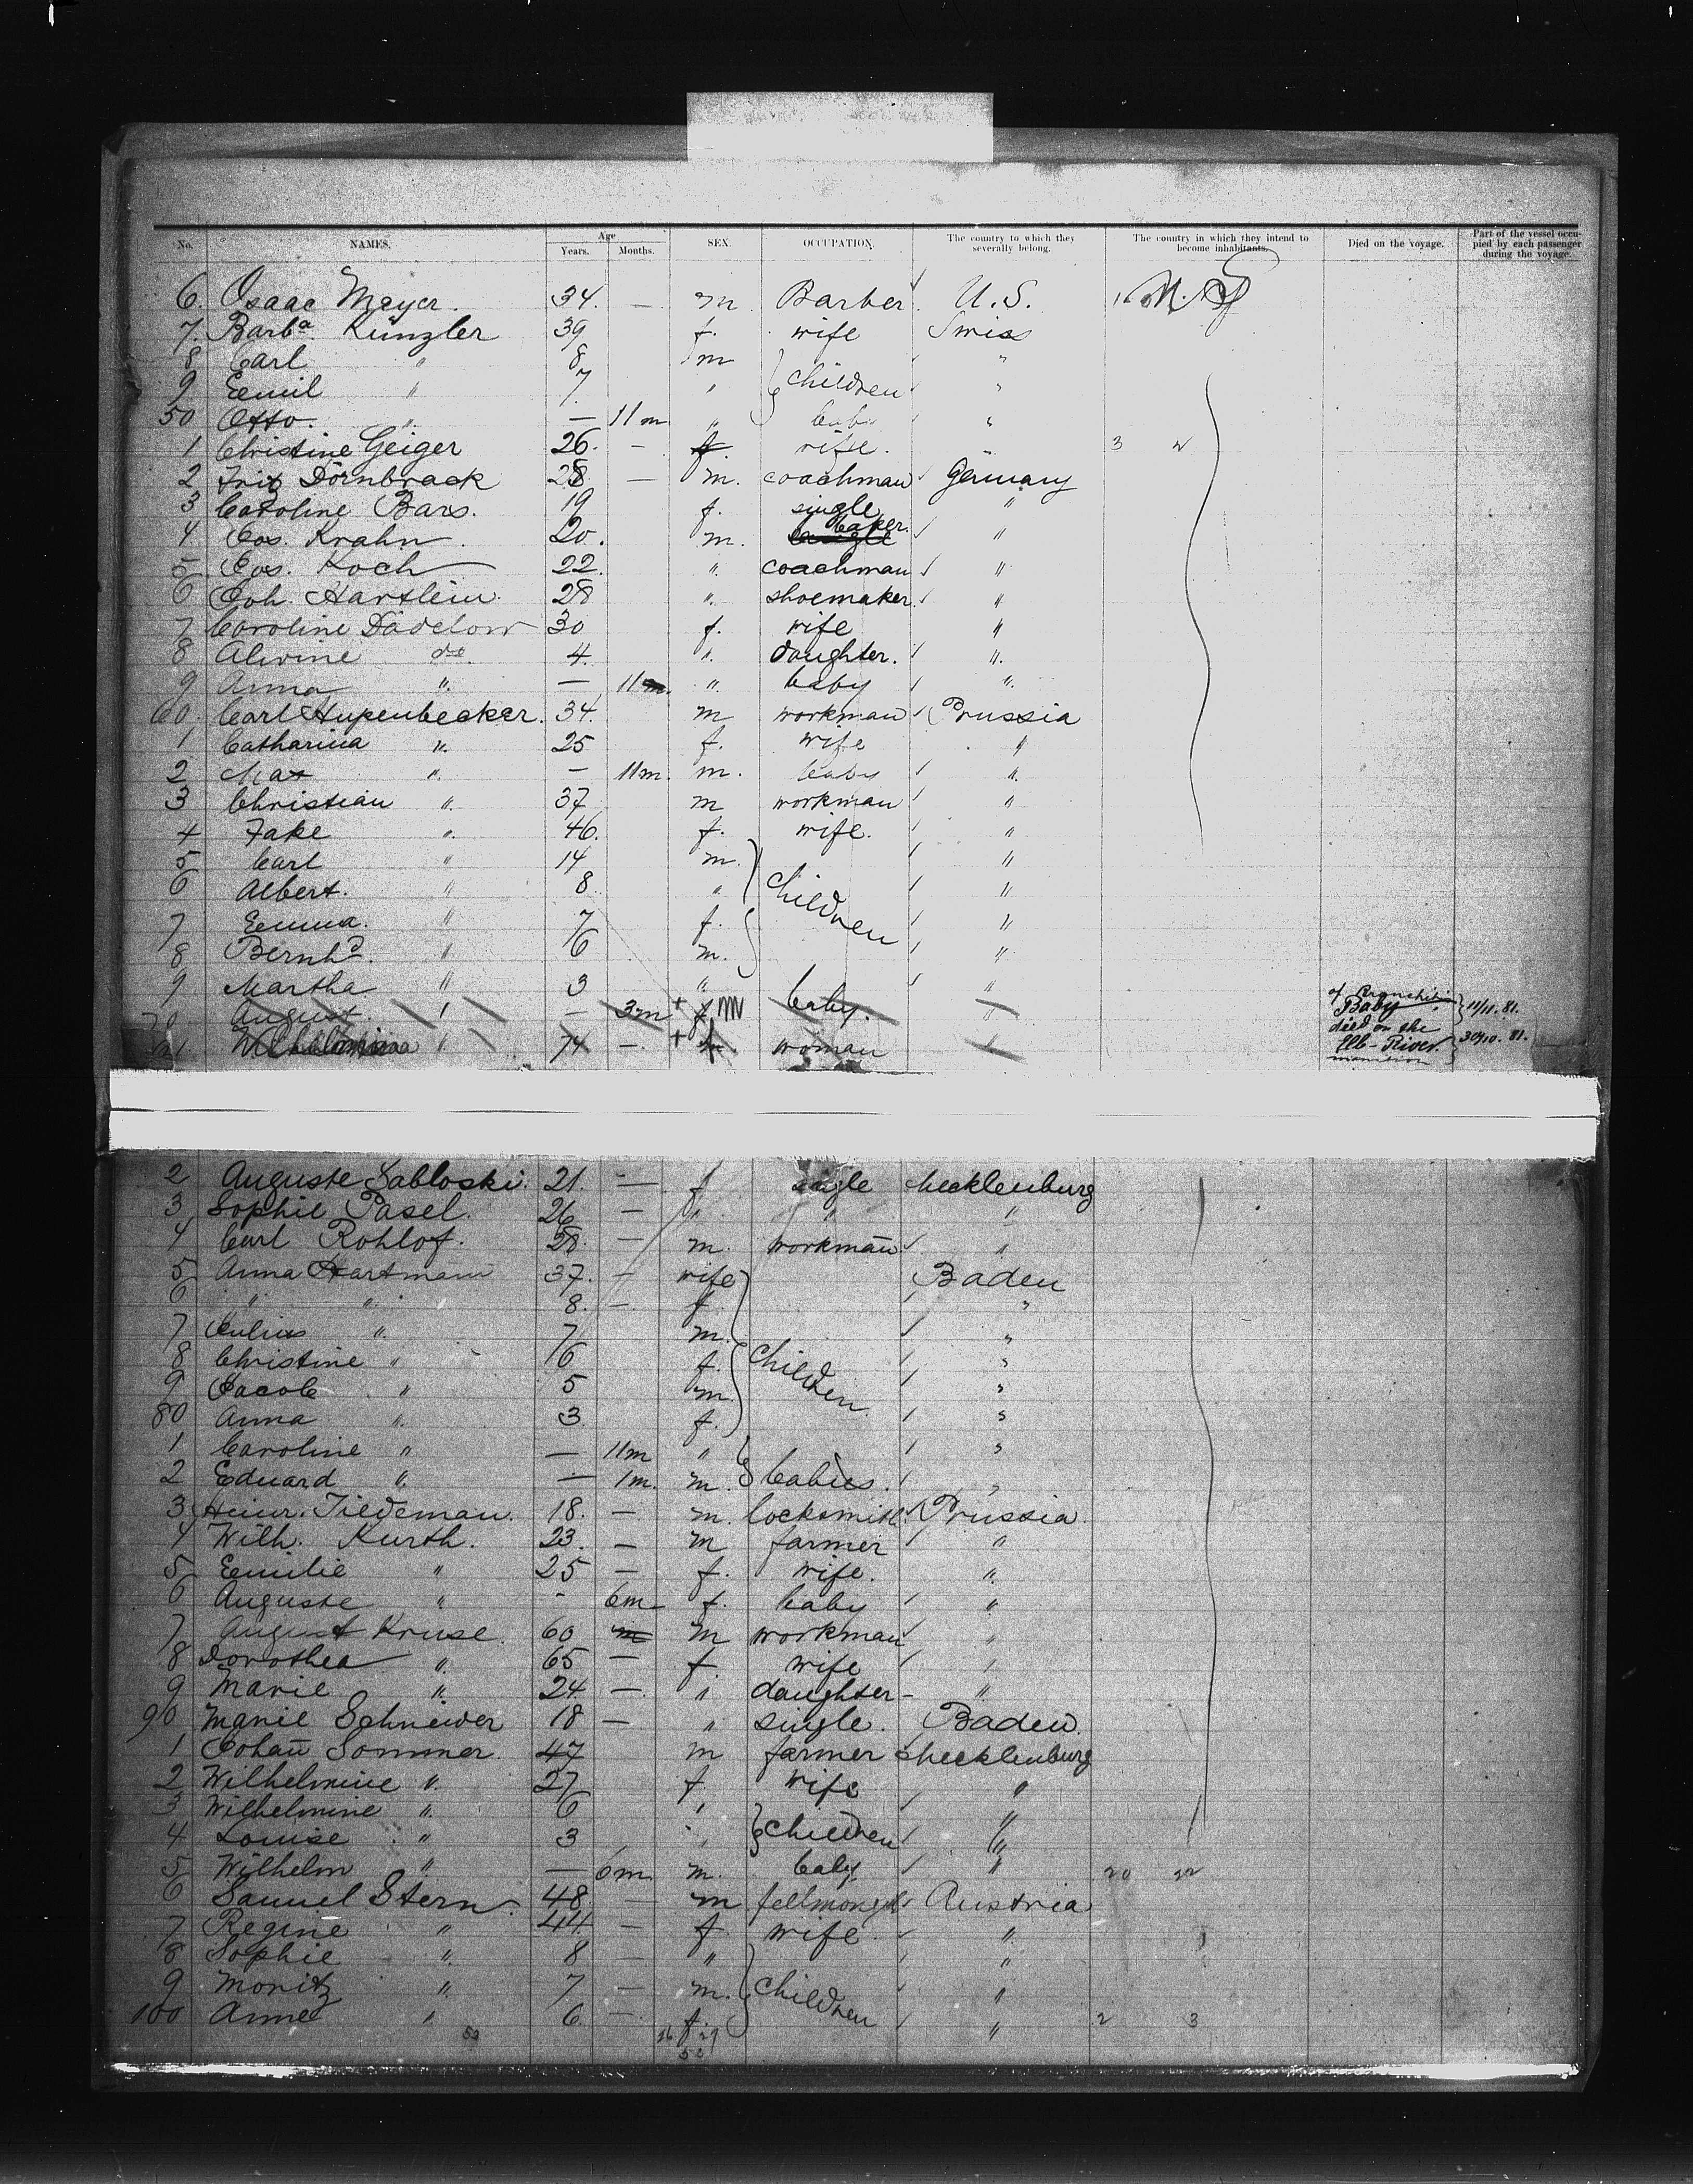 No. NAMES. Age Years. Months. SEX. OCCUPATION. The country to which they severally belong. The country in which they intend to become inhabitants. Died on the voyage. Part of the vessel occupied by each passenger during the voyage.
6. Isaac Meyer. 34. — m Barber U.S. N.Y
7. Barba. Künzler 39 f. wife Swiss
8 Carl " 8 m } children "
9 Eemil " 7 " "
50 Otto. " — 11m " baby "
1 Christine Geiger 26. — f wife. 3 w
2 Fritz Dörnbrack 28 — m. coachman Germany
3 Caroline Bars. 19 f. single "
4 Jos. Krahn. 20. m. baker. "
5 Jos. Koch 22. ". coachman "
6 Joh. Hartlein. 28 ". shoemaker. "
7 Caroline Dädelow 30 f. wife "
8 Alwine do. 4. ". daughter. ".
9 Anna ". — 11m. ". baby ".
60. Carl Hupenbecker. 34. m workman Prussia
1 Catharina ". 25 f. wife "
2 Max ". — 11m. m. baby ".
3 Christian ". 37 m workman "
4 Fake ". 46. f. wife. "
5 Carl " 14 m. } children "
6 Albert. " 8 " "
7 Emma. " 7 f. "
8 Bernhd. " 6 m. "
9 Martha " 3 " "
70 August. " — 3m + f m baby. " of Bronchitis Baby } 11/11. 81.
71 Wilhelmina " 74 — + f woman " died on the Elb-River. } 30/10. 81.
2 Auguste Sabloski. 21. — f single Mecklenburg
3 Sophie Pasel. 26 — " " "
4 Carl Rohlof. 28. — m. workman "
5 Anna Hartmann 37. — wife Baden
6 " " 8. — f. } children "
7 Julius ". 7 m. "
8 Christine " 6 f. "
9 Jacob " 5 m. "
80 Anna ". 3. f. "
1 Caroline " — 11m " } babies. "
2 Eduard ". — 1m. m. "
3 Heinr. Tiedeman. 18. — m. locksmith Prussia.
4 Wilh. Kurth. 23. — m farmer "
5 Emilie " 25 — f. wife. ".
6 Auguste " - 6m f. baby "
7 August Kruse. 60 m workman "
8 Dorothea ". 65 — f. wife "
9 Marie ". 24 —. " daughter - "
90 Marie Schneider 18 — " single. Baden.
1 Johan̄ Sommer. 47 m farmer Mecklenburg
2 Wilhelmine ". 27 f. wife "
3 Wilhelmine ". 6 " } children "
4 Louise " 3 " "
5 Wilhelm " — 6m. m. baby " 20 22
6 Samuel Stern. 48. — m Austria
7 Regine " 44 — f. wife. "
8 Sophie ". 8 — " } children "
9 Moritz ". 7 — m. "
100 Anne " 6. — f. " 2 3
52 26 29
52